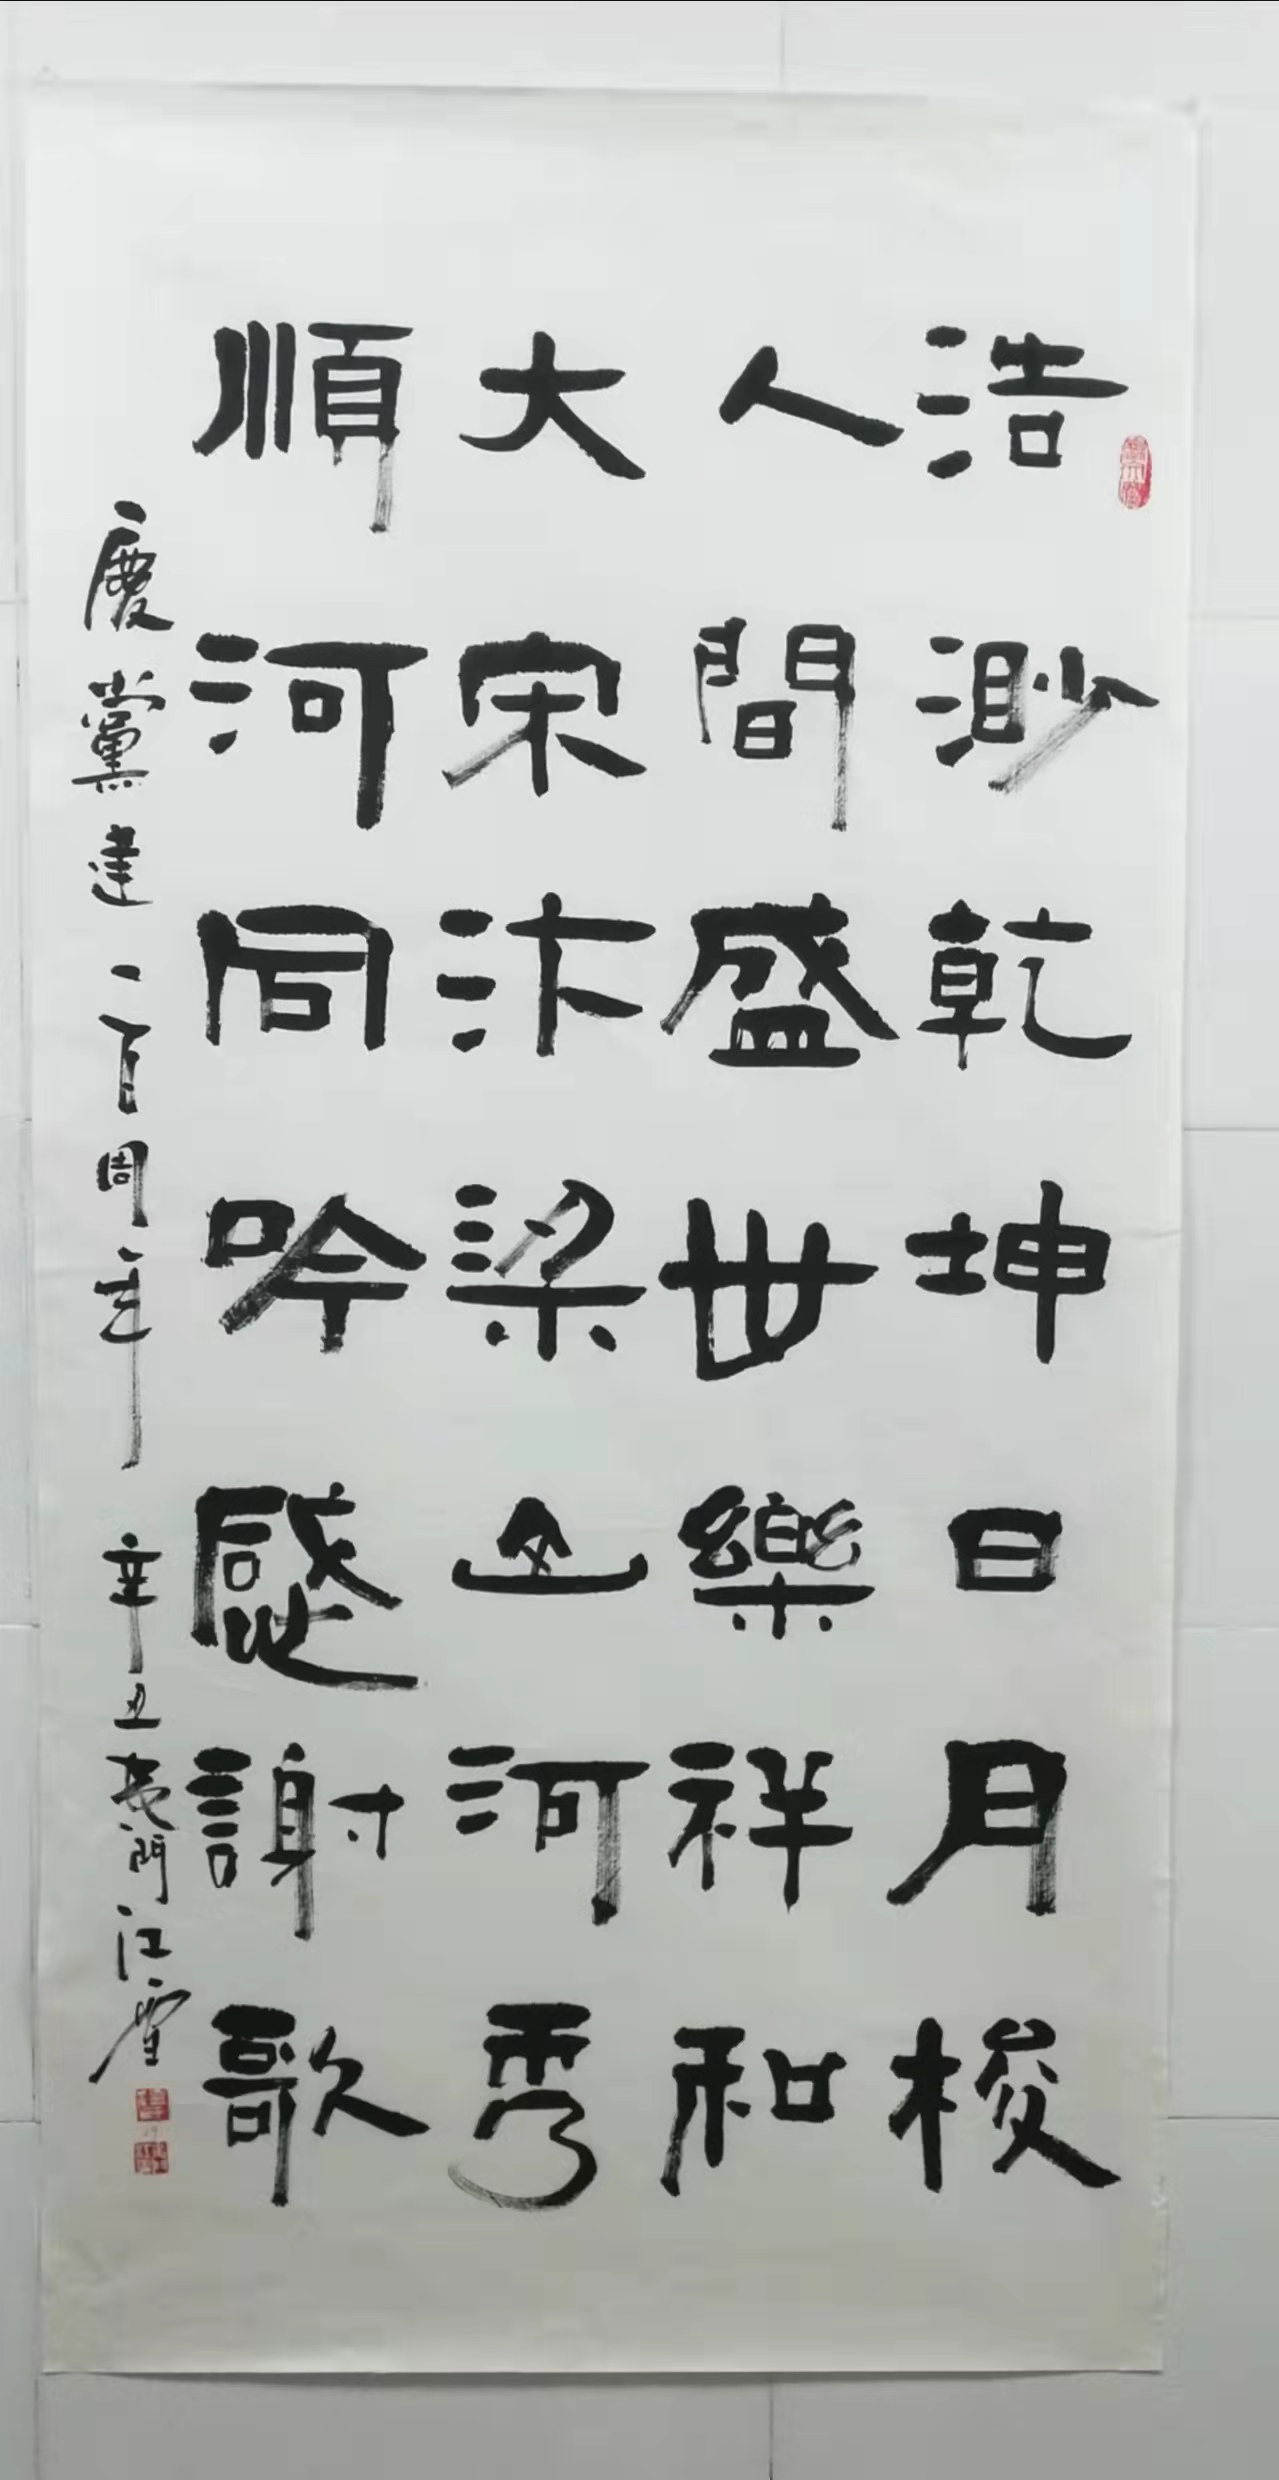 浩渺乾坤日月梭
人間盛世樂祥和
大宋汴梁山河秀
順河同吟感謝歌
慶黨建一百周年 辛丑夷門江